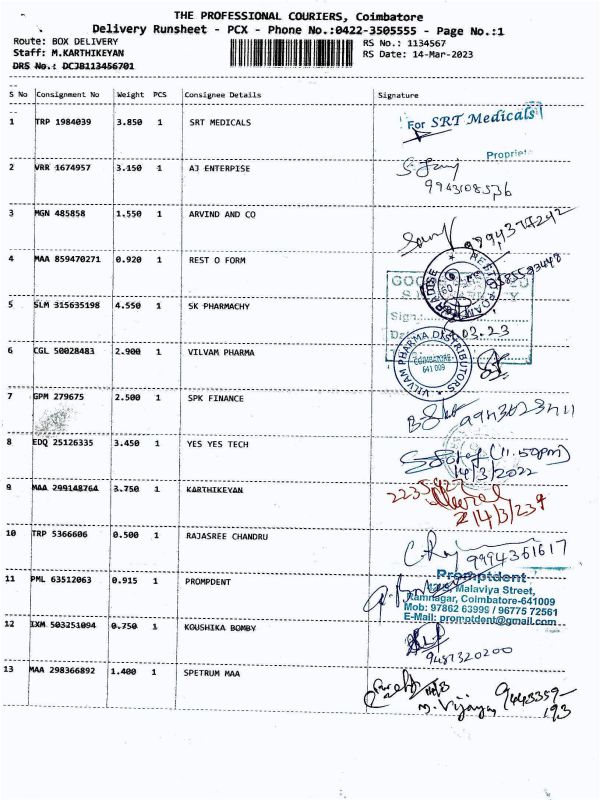 THE PROFESSIONAL COURIERS, Coimbatore
Delivery Runsheet - PCX - Phone No.:0422-3505555 - Page No.:1
Route: BOX DELIVERY
RS No.: 1134567
Staff: M.KARTHIKEYAN
RS Date: 14-Mar-2023
DRS No.: DCJB113456701
S No Consignment No Weight PCS Consignee Details Signature
1 TRP 1984039 3.850 1 SRT MEDICALS
For SRT Medicals
Propriet
2 VRR 1674957 3.150 1 AJ ENTERPISE
9943108536
3 MGN 485858 1.550 1 ARVIND AND CO
4 MAA 859470271 0.920 1 REST O FORM
5 SLM 315635198 4.550 1 SK PHARMACHY
Sign
03.23
6 CGL 50028483 2.900 1 VILVAM PHARMA
VILVAM PHARMA DISTRIBUTORS
COIMBATORE
641 009
7 GPM 279675 2.500 1 SPK FINANCE
8 EDQ 25126335 3.450 1 YES YES TECH
(11.50pm)
14/3/2022
9 MAA 299148764 3.750 1 KARTHIKEYAN
10 TRP 5366606 0.500 1 RAJASREE CHANDRU
9994361617
11 PML 63512063 0.915 1 PROMPDENT
Promptdent
Malaviya Street,
Ramnagar, Coimbatore-641009
Mob: 97862 63999 / 96775 72561
E-Mail: promptdent@gmail.com
12 IXM 503251094 0.750 1 KOUSHIKA BOMBY
9487320200
13 MAA 298366892 1.400 1 SPETRUM MAA
M. Vijaya
9443359-
193